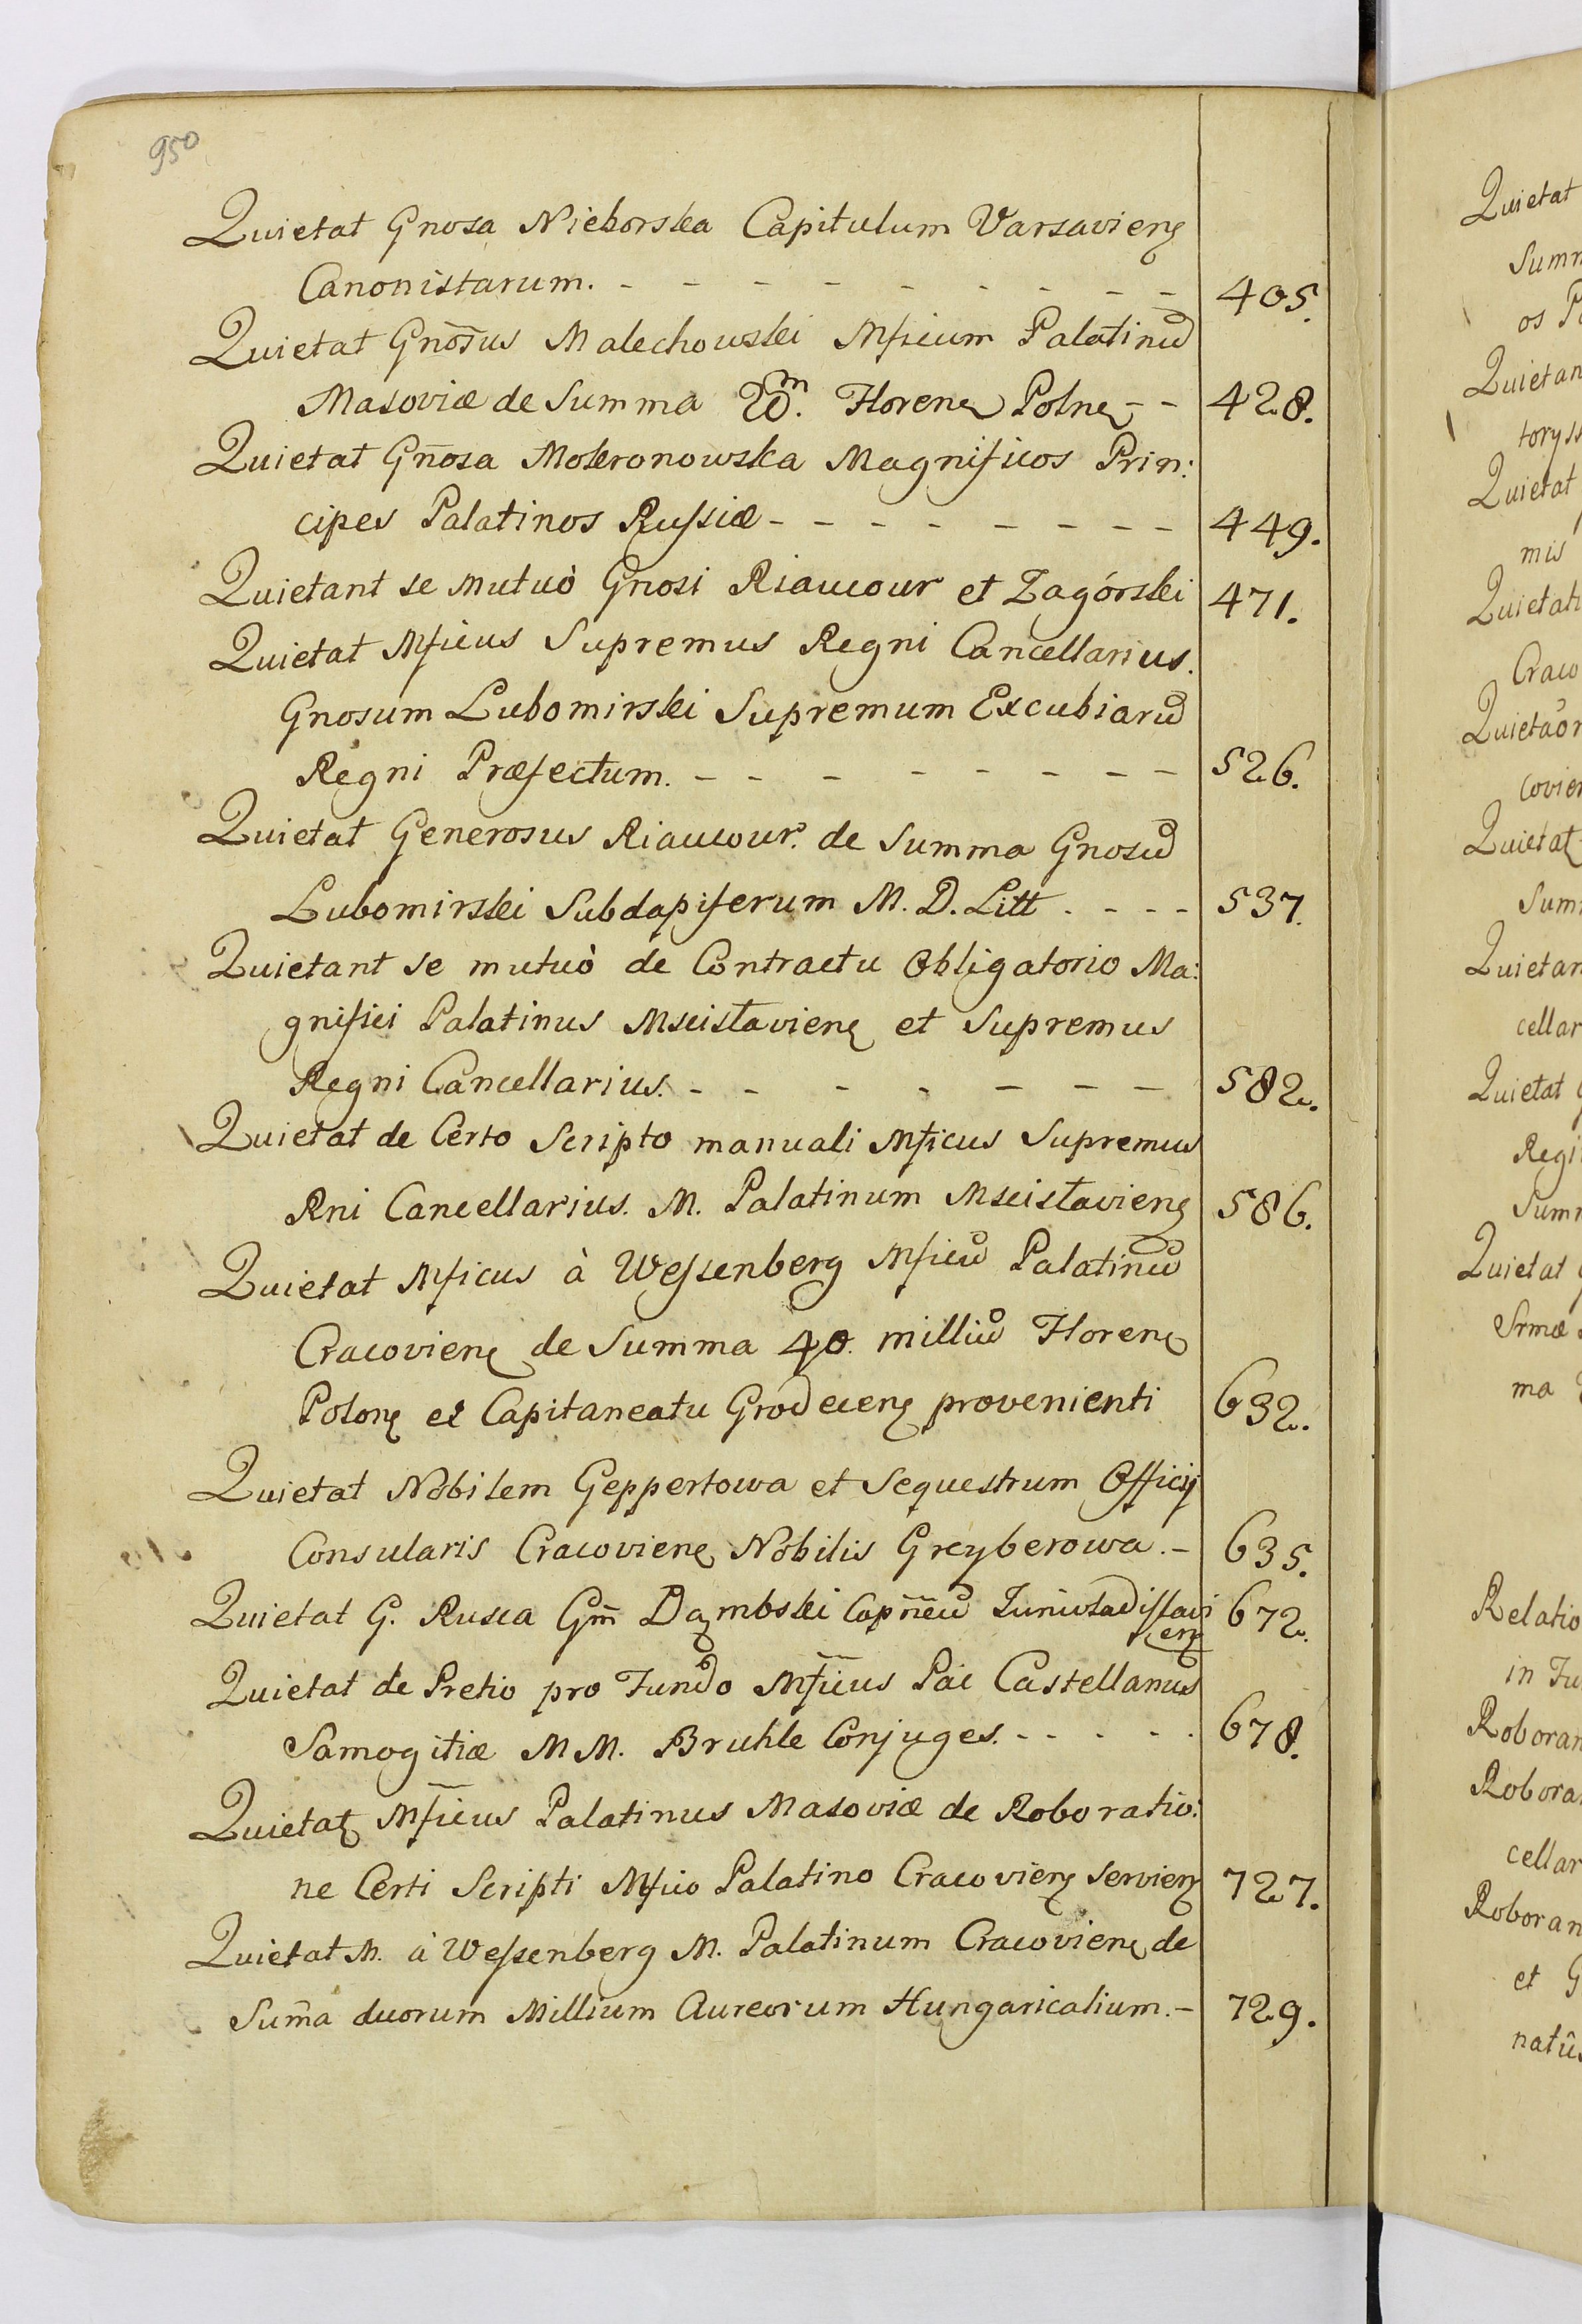 950
Quietat Gnosa Nieborska Capitulum Varsavien
Canonistarum. - - - - - - - - - 405.
Quietat Gnosus Malechowski Mficum Palatinu
Masoviæ de Summa 20.m Floren Poln - - 428.
Quietat Gnosa Mokronowska Magnificos Prin:
cipes Palatinos Russiæ - - - - - - - 449.
Quietant se mutuò Gnosi Riaucour et Zagórski 471.
Quietat Mficus Supremus Regni Cancellarius.
Gnosum Lubomirski Supremum Excubiaru
Regni Præfectum. - - - - - - - - 526.
Quietat Generosus Riaucour. de Summa Gnosu
Lubomirski Subdapiferum M. D. Litt . - - - 537.
Quietant se mutuò de Contractu Obligatorio Ma:
gnifici Palatinus Mscislavien et Supremus
Regni Cancellarius. - - - - - - - 582.
Quietat de Certo Scripto manuali Mficus Supremus
Rni Cancellarius. M. Palatinum Mscislavien 586.
Quietat Mficus à Wessenberg Mficu Palatinu
Cracovien de Summa 40. milliu Floren
Polon ex Capitaneatu Grodecen provenienti 632.
Quietat Nobilem Geppertowa et Sequestrum Officij
Consularis Cracovien Nobilis Greyberowa. - 635.
Quietat G. Rusca Gm Dąmbski Capneu Juniwladislavi 672.
en
Quietat de Pretio pro Fundo Mficus Pac Castellanus
Samogitiæ M M. Bruhle Conjuges. - - - - 678.
Quietat Mficus Palatinus Masoviæ de Roboratio:
ne Certi Scripti Mfico Palatino Cracovien servien 727.
Quietat M. à Wessenberg M. Palatinum Cracovien de
Sum̃a duorum Millium Aureorum Hungaricalium. - 729.
Quietat
Quietan
toryss
Quietat
mis
Craco
Quietat
Quietan
cellar
Quietat
Regi
Quietat
ma
Relatio
in Fu
Roboran
cellar
Roboran
et G